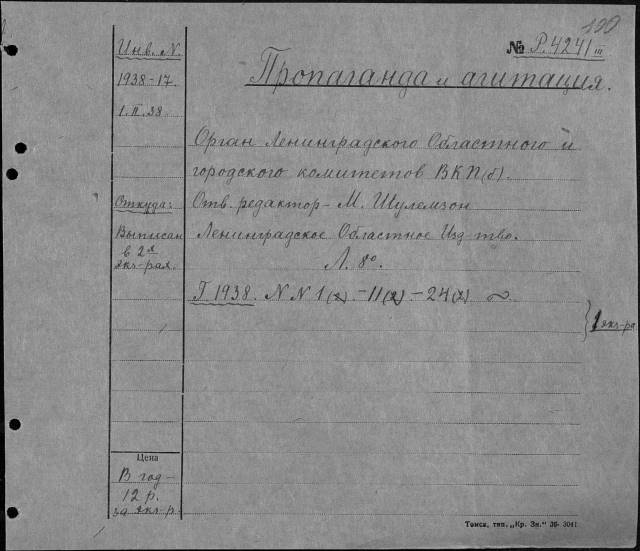 199
№ Р.4241 III
Пропаганда и агитация.
Инв. N.
1938-17.
1.II.38
Орган Ленинградского Областного и
городского комитетов ВКП(б).
Откуда:
Отв. редактор - М. Шулемзон
Выписан
в 2х
экз-рах.
Ленинградское Областное Изд-тво.
Л. 8º.
Г 1938. N N 1(2) - 11(2) - 24(2)
} 1 экз-ра
Цена
В год -
12 р.
за экз-р.
Томск, тип. „Кр. Зн." 36- 3041